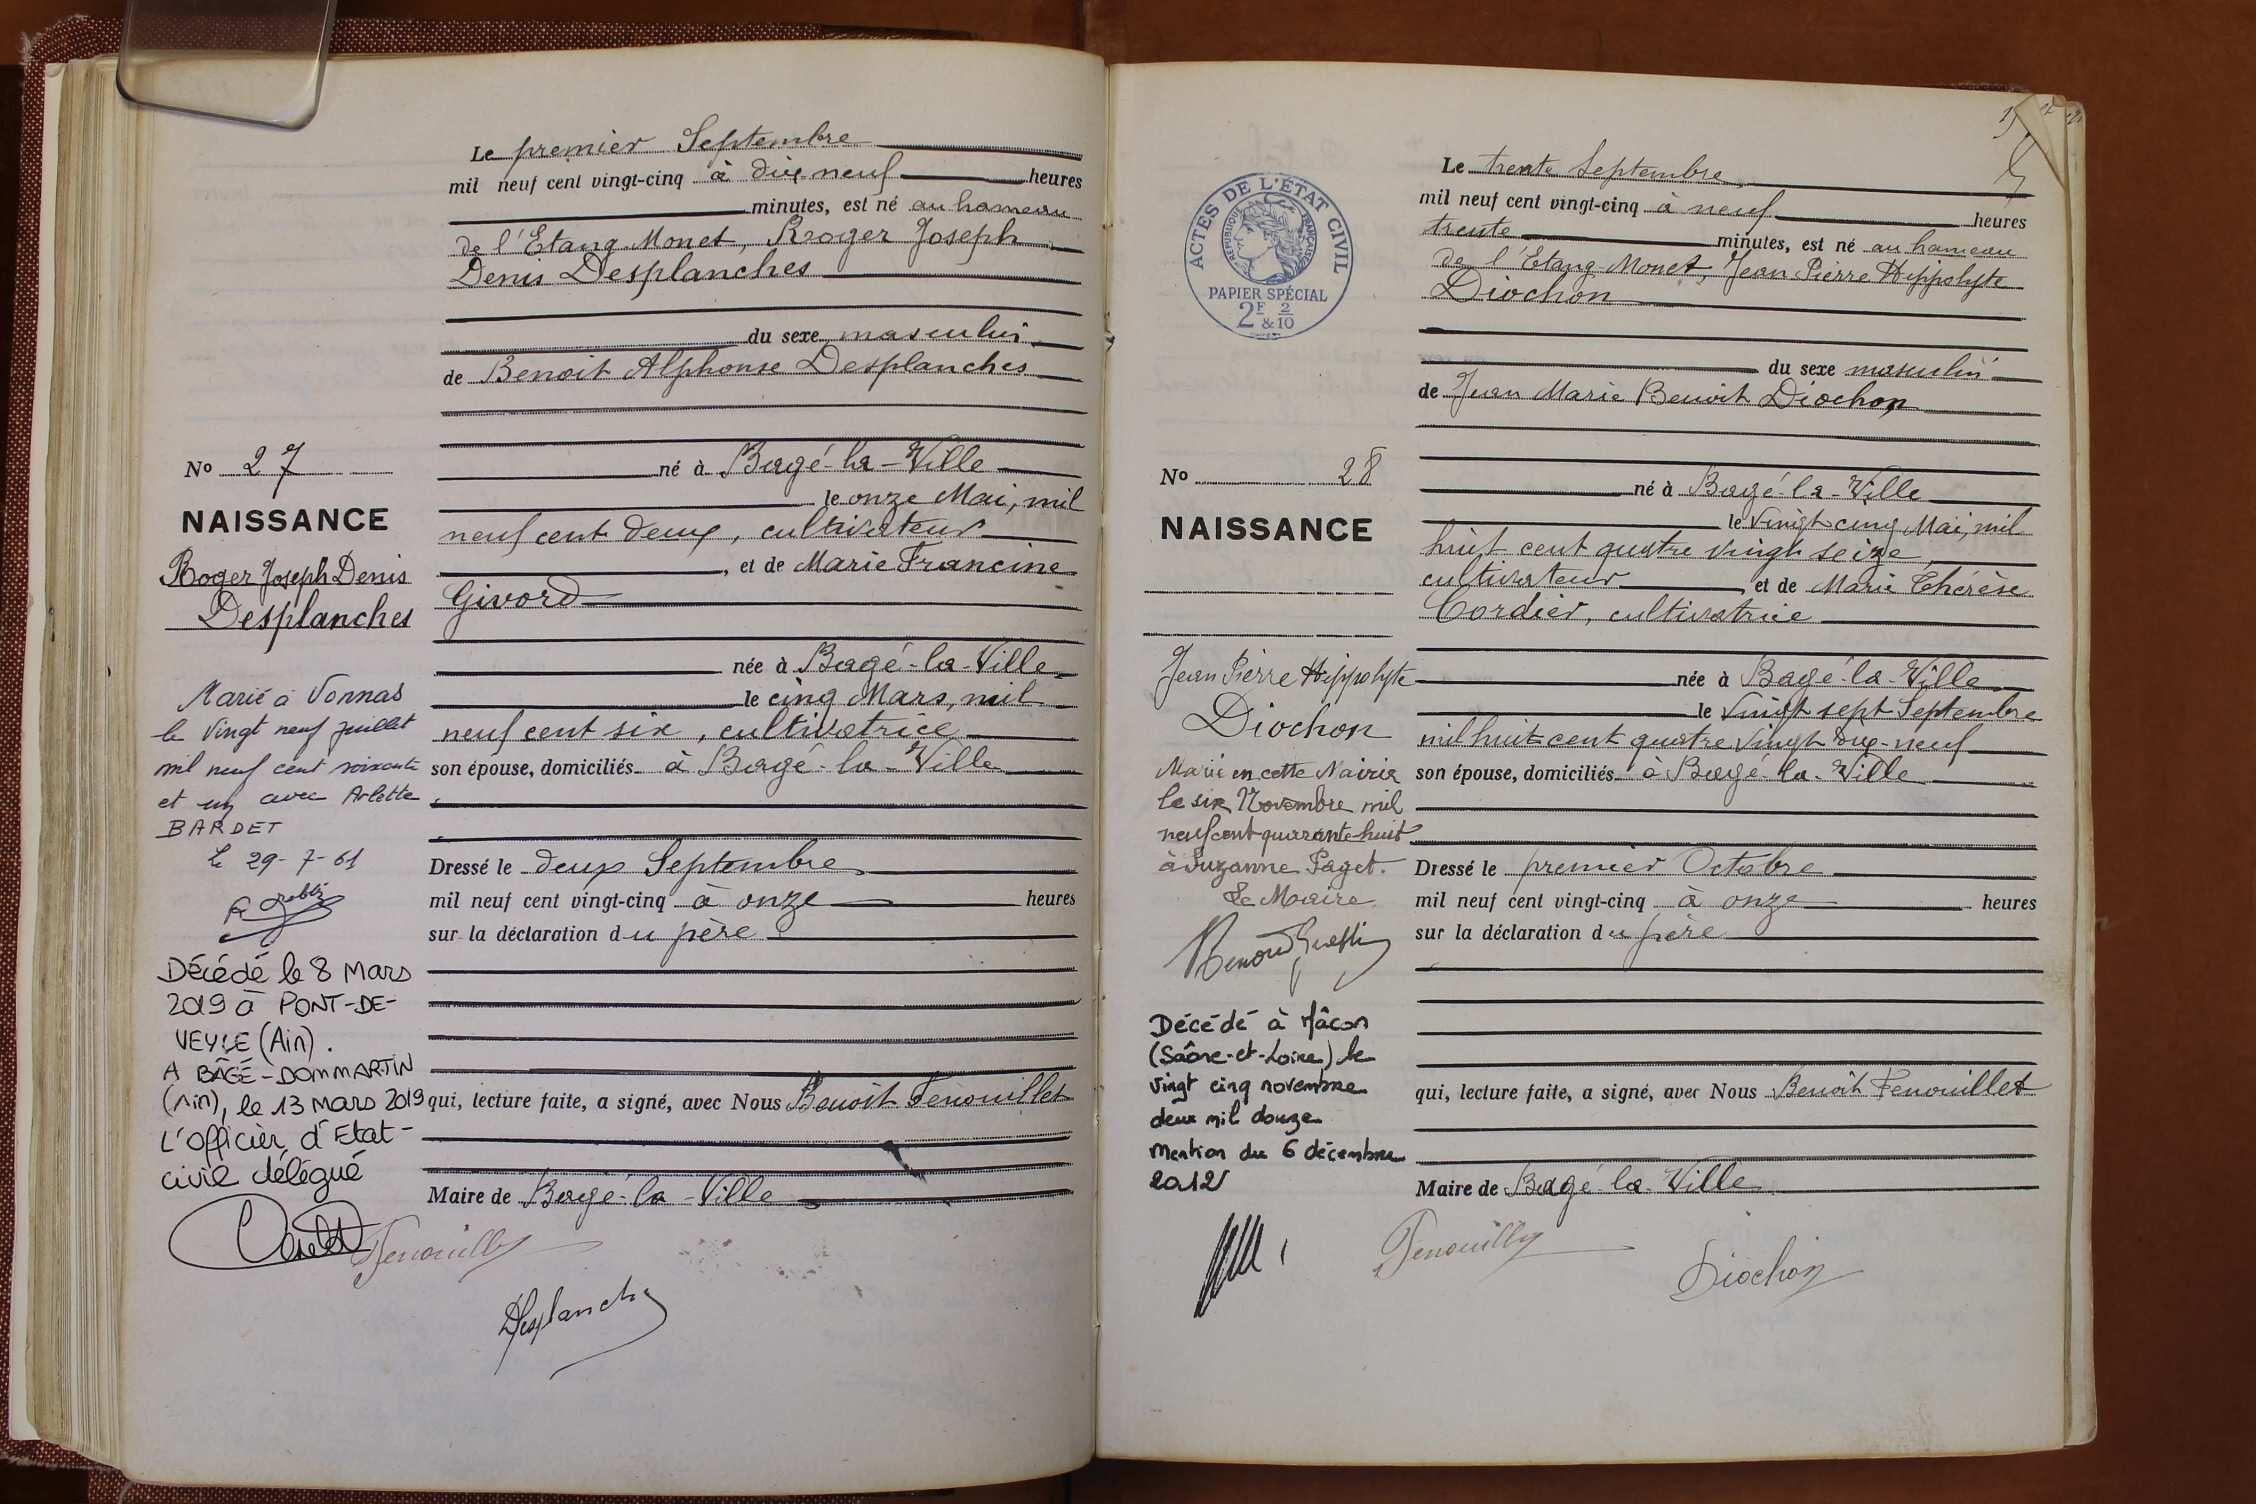 Le premier Septembre
mil neuf cent vingt-cinq à dix-neuf heures
minutes, est né au hameau
de l'Etang-Monet, Roger Joseph
Denis Desplanches
du sexe masculin
de Benoit Alphonse Desplanches
No 27
né à Bagé-la-Ville
le onze Mai, mil
NAISSANCE
neuf cent deux, cultivateur
, et de Marie Francine
Roger Joseph Denis
Givord
Desplanches
née à Bagé-la-Ville
le cinq Mars, mil
neuf cent six, cultivatrice
son épouse, domiciliés à Bagé-la-Ville
Marié à Vonnas
le vingt neuf juillet
mil neuf cent soixante
et un avec Arlette
BARDET
le 29-7-61
Dressé le deux Septembre
mil neuf cent vingt-cinq à onze heures
sur la déclaration du père
Décédé le 8 mars
2019 à PONT-DE-
VEYLE (Ain).
A BÂGÉ-DOMMARTIN
(Ain), le 13 mars 2019
L'officier d'Etat-
civil délégué
qui, lecture faite, a signé, avec Nous Benoit Fenouillet
Maire de Bagé-la-Ville
Fenouillet
Desplanches
Le trente Septembre
mil neuf cent vingt-cinq à neuf heures
trente minutes, est né au hameau
de l'Etang-Monet, Jean Pierre Hippolyte
Diochon
ACTES DE L'ÉTAT CIVIL
RÉPUBLIQUE FRANÇAISE
PAPIER SPÉCIAL
2F & 2/10
du sexe masculin
de Jean Marie Benoit Diochon
No 28
né à Bagé-la-Ville
NAISSANCE
le vingt cinq Mai, mil
huit cent quatre vingt seize
cultivateur, et de Marie Thérèse
Cordier, cultivatrice
Jean Pierre Hippolyte
Diochon
née à Bagé-la-Ville
le vingt sept Septembre
mil huit cent quatre vingt dix-neuf
son épouse, domiciliés à Bagé-la-Ville
Marié en cette Mairie
le six Novembre mil
neuf cent quarante-huit
à Suzanne Paget.
Le Maire
Dressé le premier Octobre
mil neuf cent vingt-cinq à onze heures
sur la déclaration du père
Décédé à Mâcon
(Saône-et-Loire) le
vingt cinq novembre
deux mil douze
mention du 6 décembre
2012
qui, lecture faite, a signé, avec Nous Benoit Fenouillet
Maire de Bagé-la-Ville
Fenouillet
Diochon